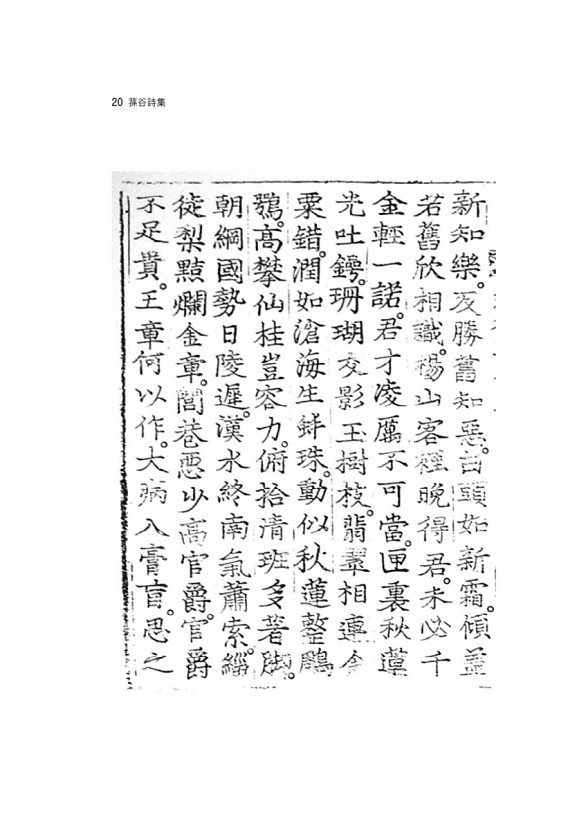 20 蓀谷詩集
新知樂。反勝舊知惡。白頭如新霜。傾蓋
若舊欣相識。楊山客裡晚得君。未必千
金輕一諾。君才凌厲不可當。匣裏秋蓮
光吐鍔。珊瑚交影玉樹枝。翡翠相連金
粟錯。潤如滄海生蚌珠。動似秋蓮整鵰
鶚。高攀仙桂豈容力。俯拾清班多著脚。
朝綱國勢日陵遲。漢水終南氣蕭索。緇
徒梨㸃爛金章。閭巷惡少高官爵。官爵
不足貴。王章何以作。大病入膏肓。思之